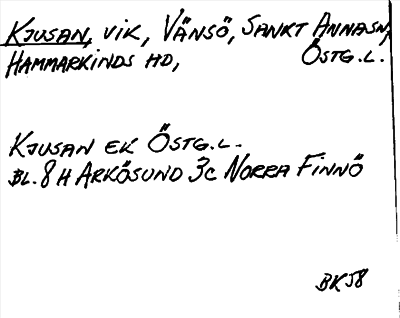 KJUSAN, VIK, VÄNSÖ, SANKT ANNASN,
HAMMARKINDS HD, ÖSTG.L.
KJUSAN EK ÖSTG.L.
BL. 8 H ARKÖSUND 3C NORRA FINNÖ
BK58